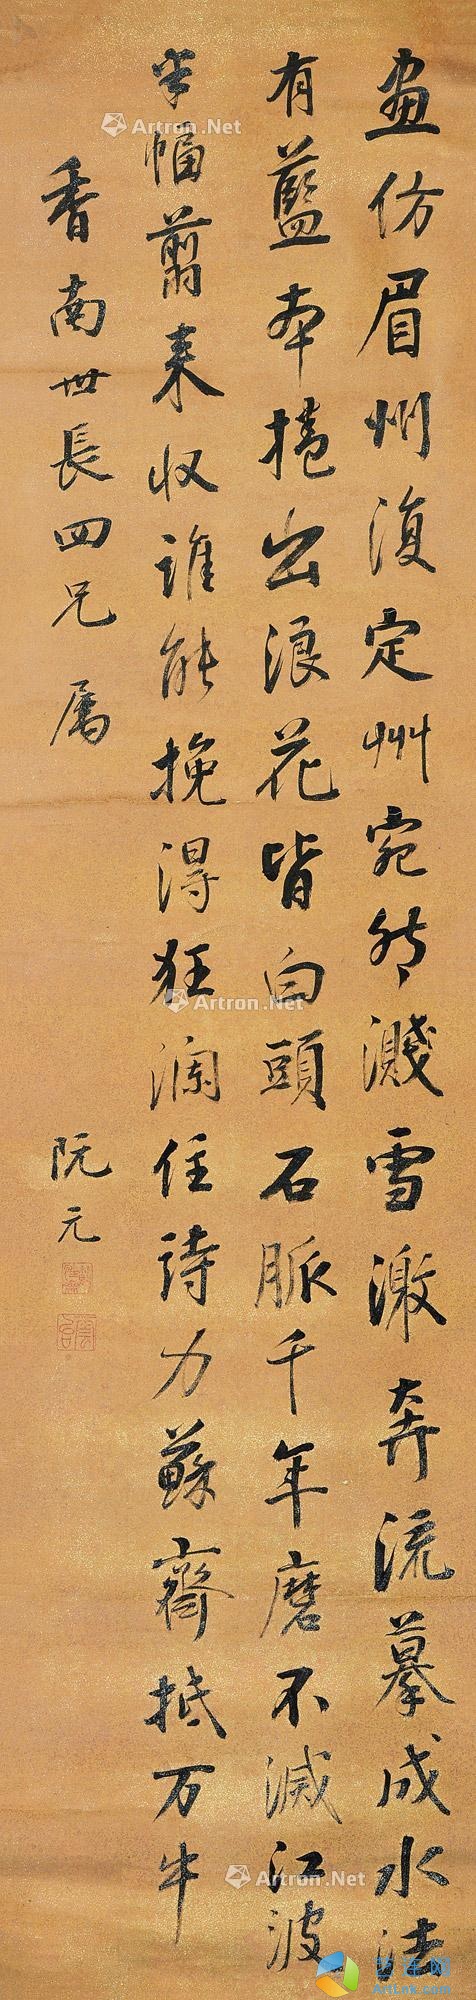 畫仿眉州復定州宛然濺雪激奔流摹成水法
有藍本捲出浪花皆白頭石脈千年磨不滅江波
半幅翦来収誰能挽得狂瀾住詩力蘇齋抵万牛
香南世長四兄屬
阮元
Artron.Net
Artron.Net
Artron.Net
Artron.Net
Artron.Net
Artron.Net